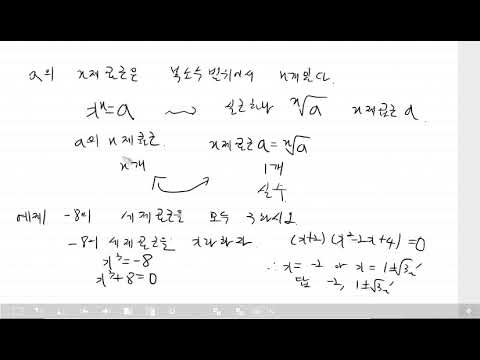 a의 n제곱근은 복소수 범위에서 n개있다.
xⁿ=a ⇝ 실근하나 ⁿ√a n제곱근 a.
a의 n제곱근 n제곱근 a = ⁿ√a
n개 1개
실수
예제 -8의 세제곱근을 모두 구하시오
-8의 세제곱근을 x라하자 (x+2)(x²-2x+4)=0
x³=-8 ∴ x=-2 or x=1±√3i
x³+8=0 답 -2, 1±√3i